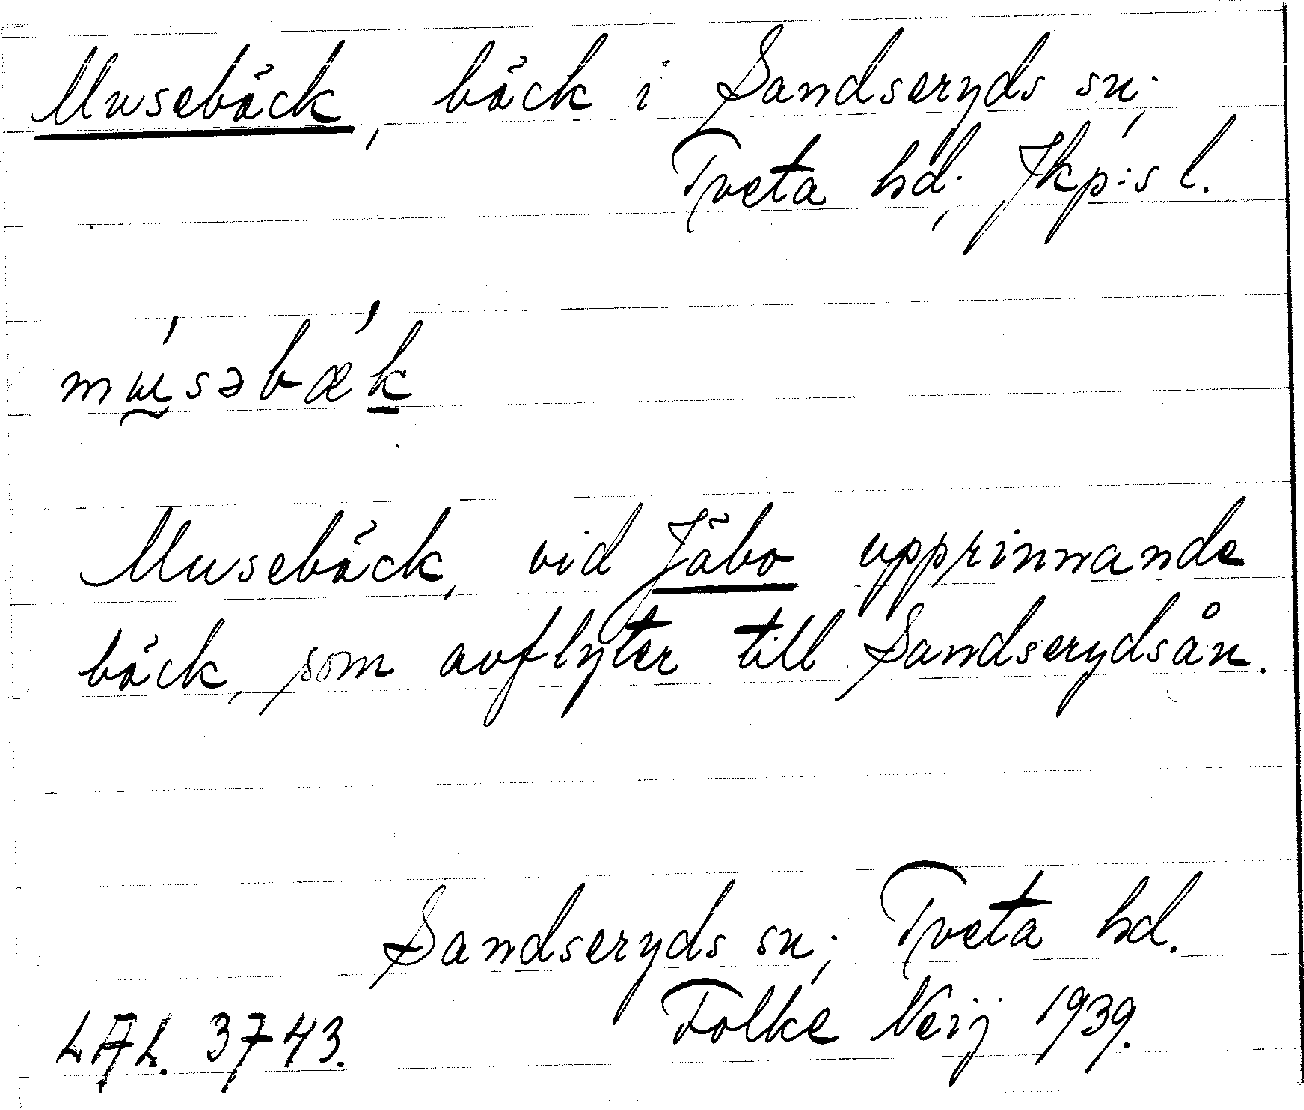 Musebäck, bäck i Sandseryds sn;
Tveta hd; Jkp:s l.
mṵ́səbæ̀ḵ
Musebäck, vid Jäbo upprinnande
bäck, som avflyter till Sandserydsån.
Sandseryds sn; Tveta hd.
LAL. 3743. Folke Neij 1939.